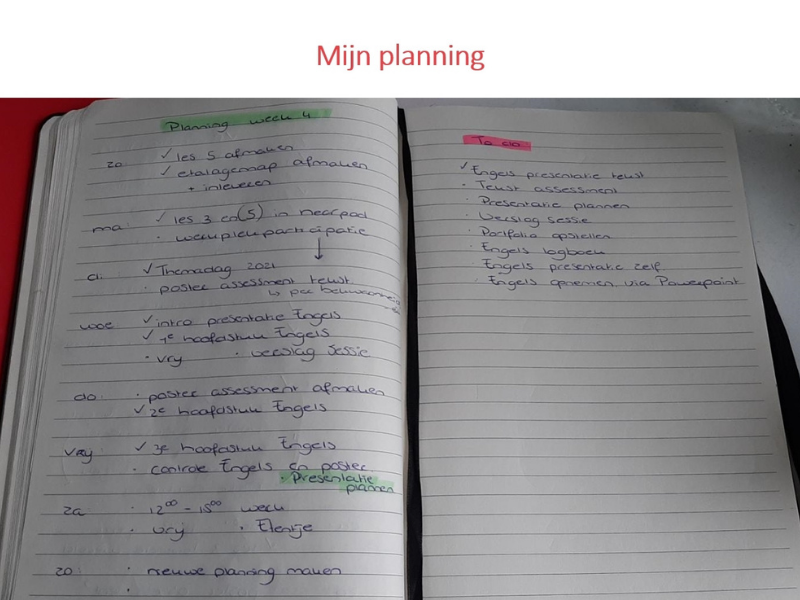 Mijn planning
Planning week 4
zo ✓ les 5 afmaken
✓ etalagemap afmaken
+ inleveren
ma: ✓ les 3 en (5) in nearpod
· werkplekparticipatie
di: ✓ Themadag 2021
· poster assessment tekst
↳ per
woe: ✓ intro presentatie Engels
✓ 1e hoofdstuk Engels
· vrij · verslag sessie
do: · poster assessment afmaken
✓ 2e hoofdstuk Engels
vrij: ✓ 3e hoofdstuk Engels
· controle Engels en poster
· Presentatie
plannen
za · 12⁰⁰ - 18⁰⁰ werk
· vrij · Etentje
zo: · nieuwe planning maken
·
To do
✓ Engels presentatie tekst
· Tekst assessment
· Presentatie plannen
· Verslag sessie
· Portfolio opstellen
· Engels logboek
· Engels presentatie zelf
· Engels opnemen via Powerpoint